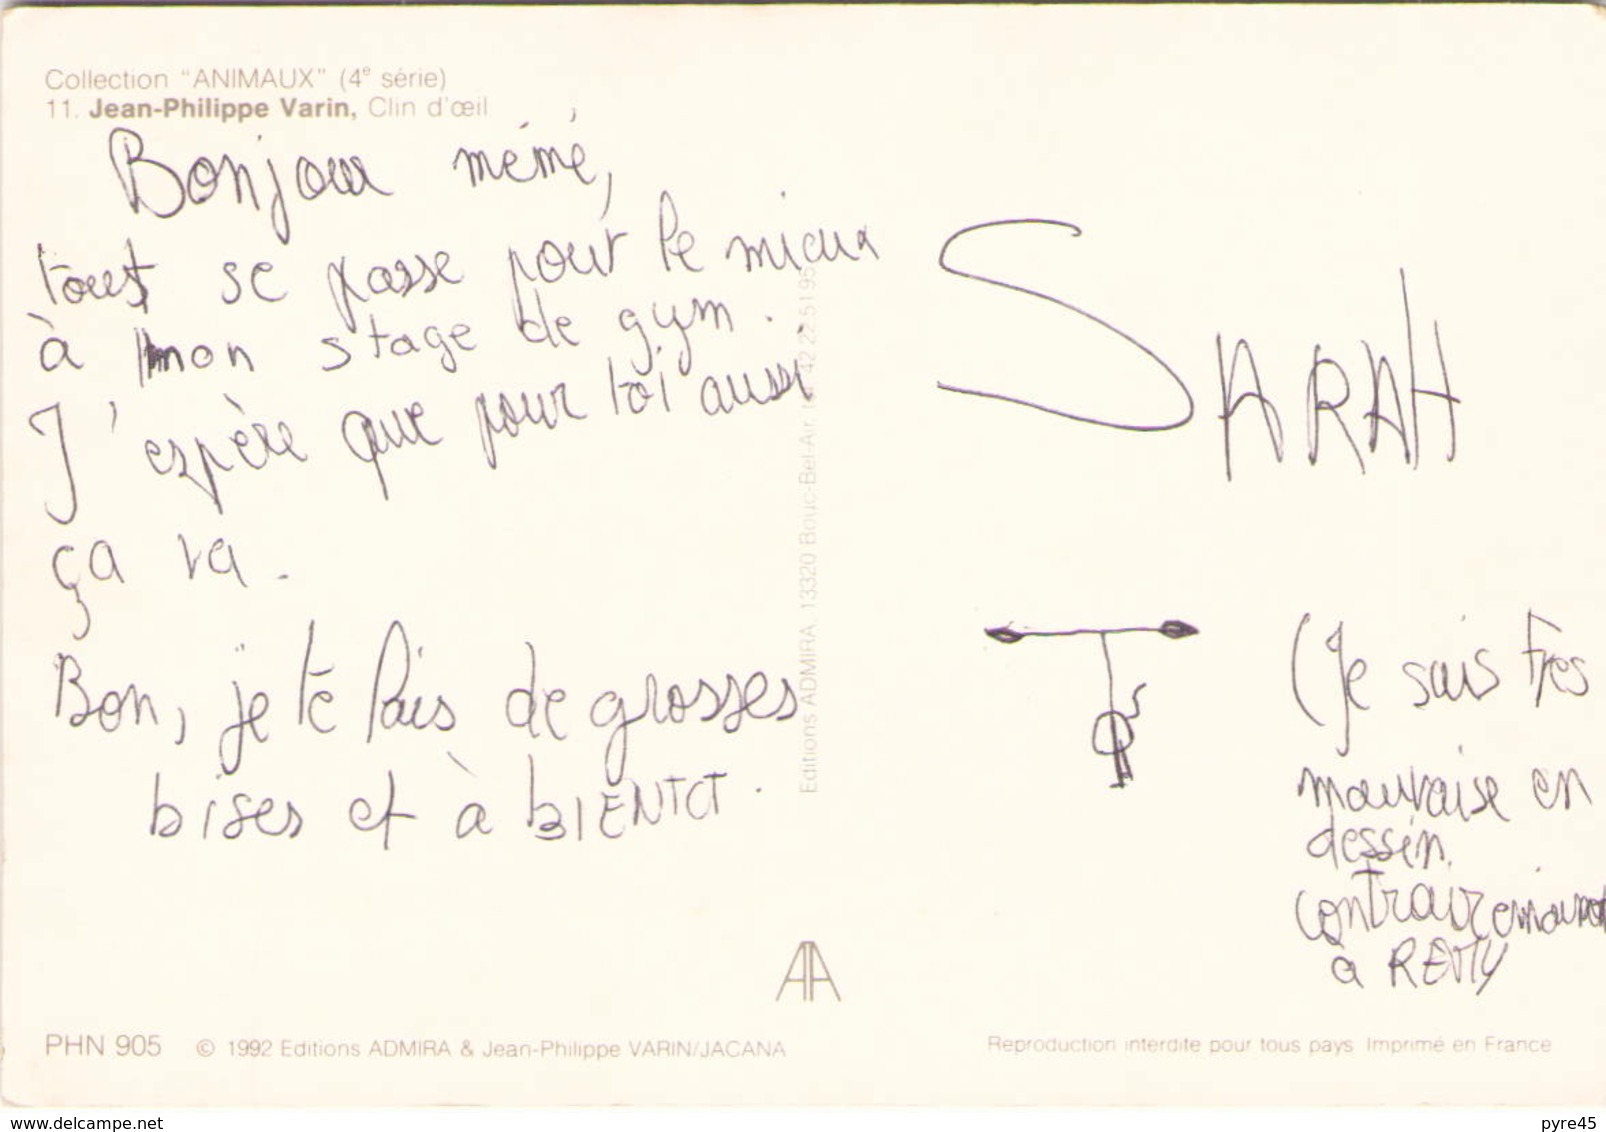 Collection "ANIMAUX" (4e série)
11. Jean-Philippe Varin, Clin d'œil
Bonjour mémé,
tout se passe pour le mieux
à mon stage de gym.
J'espère que pour toi aussi
ça va.
Bon, je te fais de grosses
bises et à bIENTOT.
Editions ADMIRA, 13320 Bouc-Bel-Air, 42 22 51 95
SARAH
(Je suis très
mauvaise en
dessin
contrairement
à REMY
AA
PHN 905 © 1992 Editions ADMIRA & Jean-Philippe VARIN/JACANA
Reproduction interdite pour tous pays Imprimé en France
www.delcampe.net
pyre45